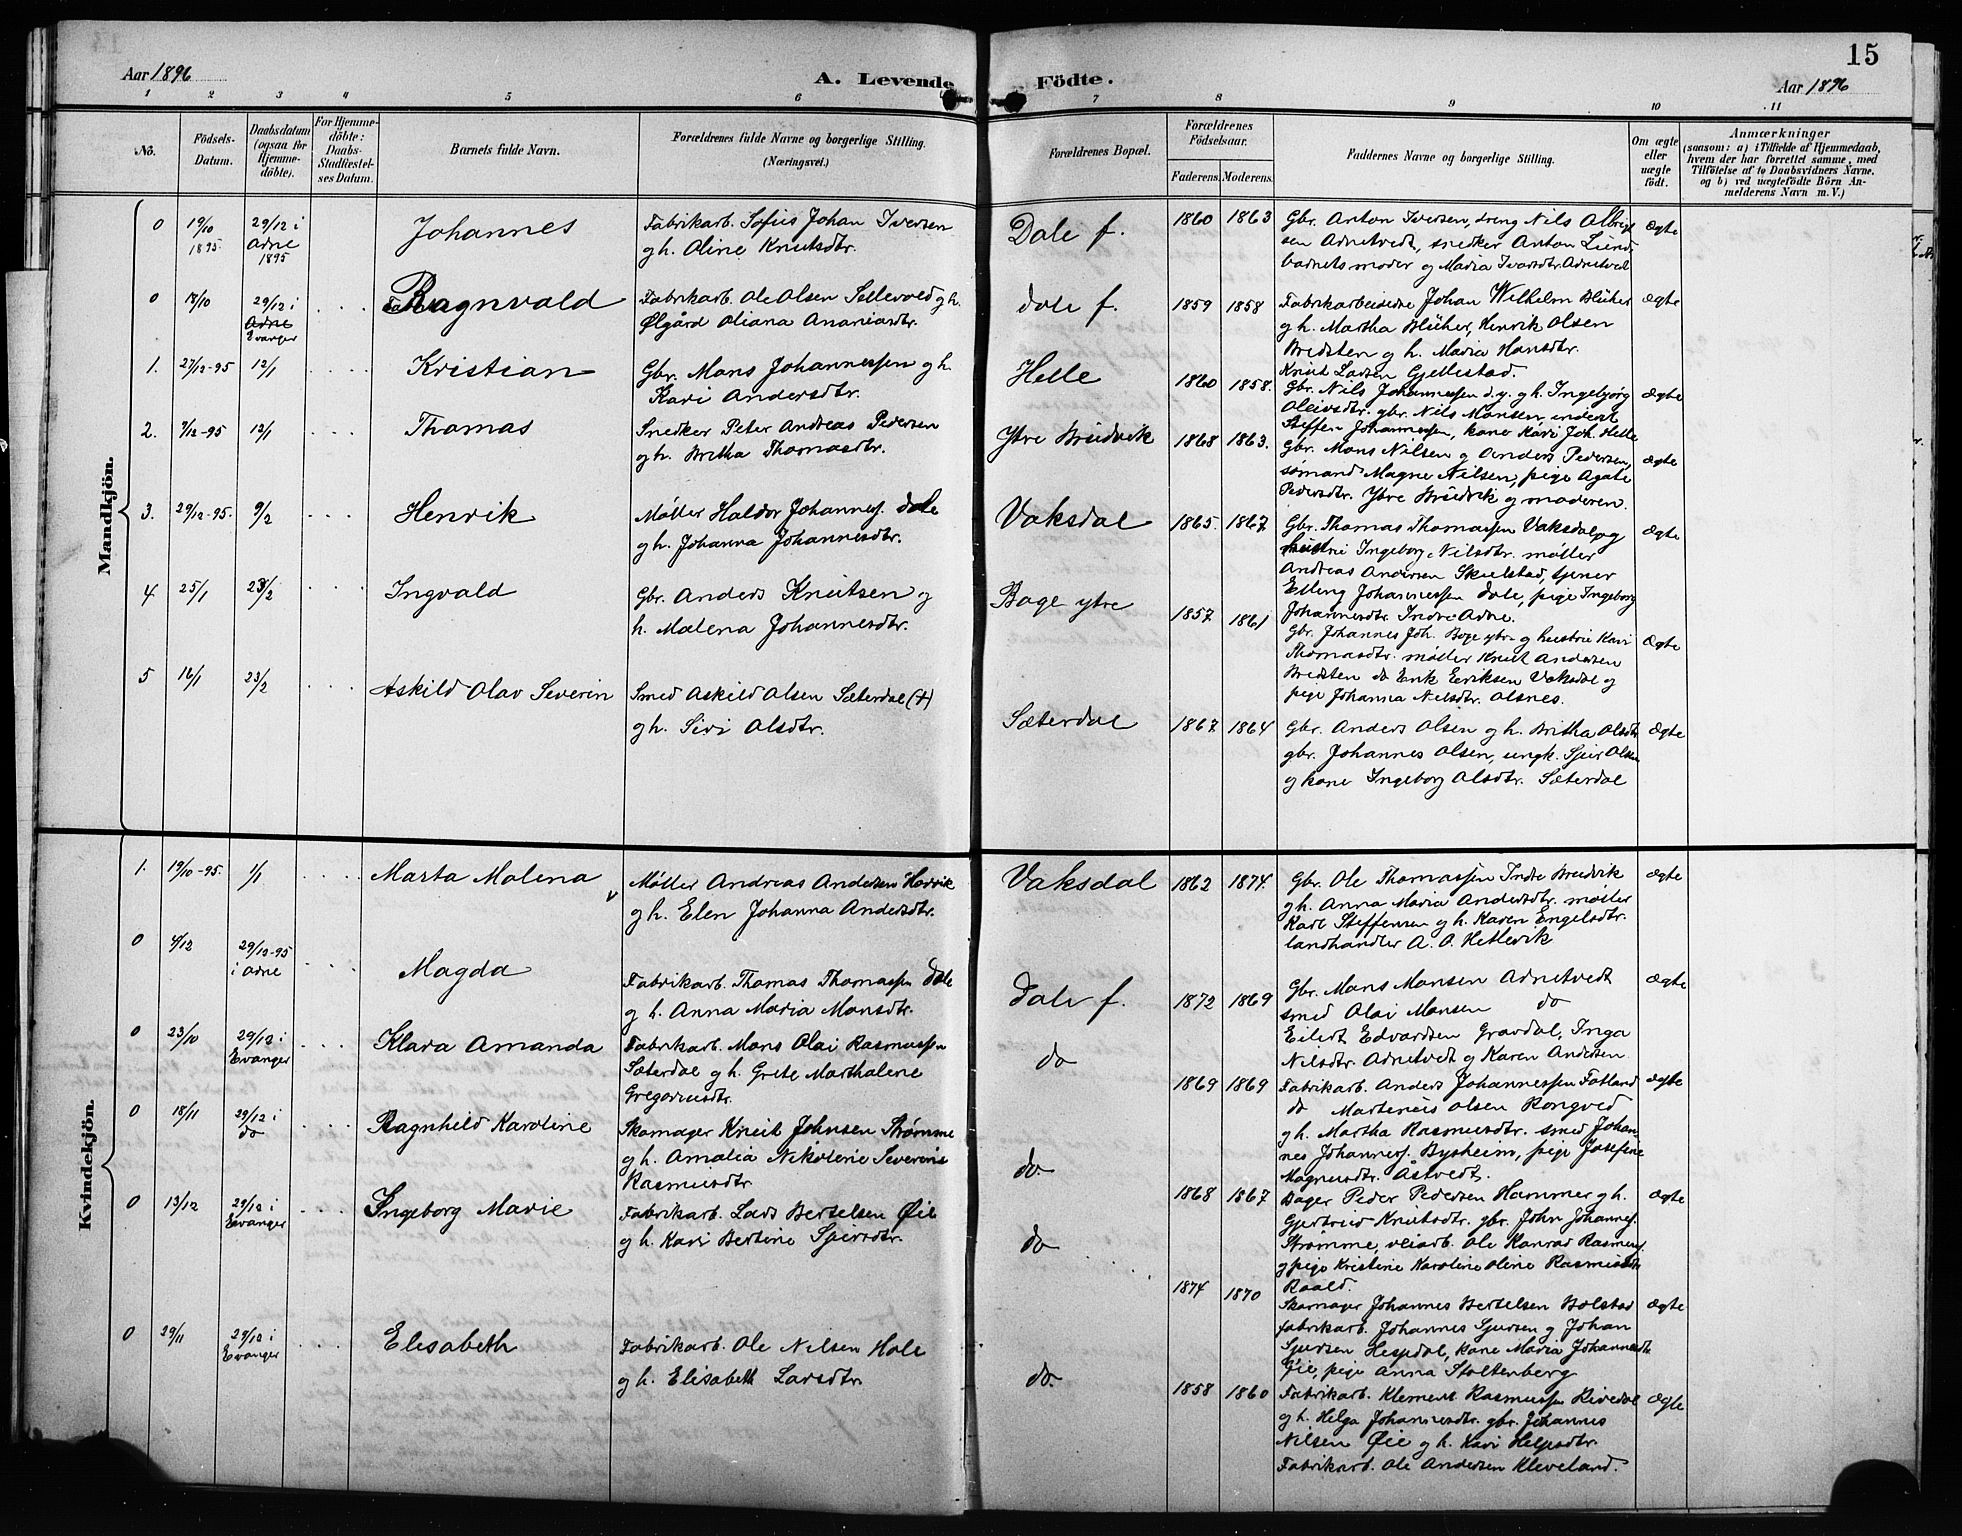 15
Aar 1896
A. Levende Födte.
Aar 1896
1 2 3 4 5 6 7 8 9 10 11
No.
Födsels-
Datum.
Daabsdatum
(ogsaa for
Hjemme-
döbte).
For Hjemme-
döbte:
Daabs-
Stadfæstel-
ses Datum.
Barnets fulde Navn.
Forældrenes fulde Navne og borgerlige Stilling.
(Næringsvei.)
Forældrenes Bopæl.
Forældrenes
Födselsaar.
Faderens. Moderens.
Faddernes Navne og borgerlige Stilling.
Om ægte
eller
uægte
födt.
Anmærkninger
(saasom: a) i Tilfælde af Hjemmedaab,
hvem der har forrettet samme, med
Tilföielse af to Daabsvidners Navne,
og b) ved uægtefödte Börn An-
melderens Navn m. V.)
Mandkjön.
0 19/10 1895 29/12 i Adne 1895
Johannes
Fabrikarb. Sofus Johan Iversen
og h. Oline Knutsdtr.
Dale f.
1860 1863
Gbr. Anton Iversen, dreng Nils Albrigt
sen Adnetvedt, snedker Anton Lund
barnets moder og Maria Ivarsdtr. Adnetvedt
ægte
0 18/10 29/12 i Adne Evanger
Ragnvald
Fabrikarb. Ole Olsen Sellevold og h.
Ølgård Oliana Ananiasdtr.
Dale f.
1859 1858
Fabrikarbeidere Johan Wilhelm Blüher
og h. Martha Blüher, Henrik Olsen
Bredsten og h. Maria Hansdtr.
Knut Larsen Gjellestad.
ægte
1. 27/12-95 12/1
Kristian
Gbr. Mons Johannessen og h.
Kari Andersdtr.
Helle
1860 1858.
Gbr. Nils Johannessen d.y. og h. Ingebjørg
Oleivsdtr. gbr. Nils Monsen, enderst
Steffen Johannessen, kone Kari Joh. Helle
ægte
2. 7/12-95 12/1
Thomas
Snedker Peter Andreas Pedersen
og h. Britha Thomasdtr.
Ytre Bruvik
1868 1863.
Gbr. Mons Nilsen og Anders Pedersen,
sømand Magne Nilsen, pige Agate
Pedersdtr. Ytre Bruvik og moderen.
ægte
3. 29/12-95. 9/2
Henrik
Møller Haldor Johannes. Dale
og h. Johanna Johannesdtr.
Vaksdal
1865. 1867.
Gbr. Thomas Thomassen Vaksdal og
hustru Ingeborg Nilsdtr. møller
Andreas Andersen Skulstad, tjener
Elling Johannessen Dale, pige Ingeborg
Johannesdtr Indre Adne.
ægte
4 25/1 23/2
Ingvald
Gbr. Anders Knutsen og
h. Malena Johannesdtr.
Boge ytre
1857 1861
Gbr. Johannes Joh. Boge ytr. og hustru Kari
Thomasdtr. møller Knut Andersen
Bredsten do Erik Eriksen Vaksdal og
pige Johanna Nilsdtr. Olsnes.
ægte
5 16/1 23/2
Askild Olav Severin
Smed Askild Olsen Sæterdal (†)
og h. Siri Olsdtr.
Sæterdal
1867. 1864
Gbr. Anders Olsen og h. Britha Olsdtr
gbr. Johannes Olsen, ungk. Sjur Olsen
og kone Ingeborg Olsdtr. Sæterdal
ægte
Kvindekjön.
1. 19/10-95. 1/1
Marta Malena
Møller Andreas Andersen Hervik
og h. Elen Johanna Andersdtr.
Vaksdal
1862 1874.
Gbr. Ole Thomassen Indre Bruvik
og h. Anna Maria Andersdtr. møller
Karl Steffensen og h. Karen Engelsdtr.
landhandler A. O. Hetlevik
ægte
0 4/12 29/12-95 i Adne
Magda
Fabrikarb. Thomas Thomassen Dale
og h. Anna Maria Monsdtr.
Dale f.
1872 1869
Gbr. Mons Monsen Adnetvedt
smed Olai Monsen do
Eilert Edvardsen Gravdal, Inga
Nilsdtr. Adnetvedt og Karen Andersen
ægte
0 23/10 29/12 i Evanger
Klara Amanda
Fabrikarb. Mons Olai Rasmussen
Sæterdal og h. Grete Marthalene
Gregoriusdtr.
do
1869 1869
Fabrikarb. Anders Johannessen Fotland
do Martenius Olsen Rongved
og h. Martha Rasmusdtr. smed Johan-
nes Johanness. Bysheim, pige Josefine
Magnusdtr. Åstvedt.
ægte
0 18/11 29/12 i do
Ragnhild Karoline
Skomager Knut Johnsen Strømme
og h. Amalia Nikoline Severine
Rasmusdtr
do.
1868 1867
Bager Peder Pedersen Hammer og h.
Gjertrud Knutsdtr. gbr. John Johannes.
Strømme, veiarb. Ole Konrad Rasmuss.
og pige Kristine Karoline Oline Rasmusdtr
Raald.
ægte
0 13/12 29/12 i Evanger
Ingeborg Marie
Fabrikarb. Lars Bertelsen Øie
og h. Kari Bertine Sjursdtr.
do
1874 1870
Skomager Johannes Bertelsen Bolstad
fabrikarb. Johannes Sjursen og Johan
Sjursen Hesjedal, kone Maria Johannesdtr
Øie, pige Anna Stoltenberg
ægte
0 29/11 29/12 i Evanger
Elisabeth
Fabrikarb. Ole Nilsen Hole
og h. Elisabeth Larsdtr.
do.
1858 1860
Fabrikarb. Klement Rasmussen Rivedal
og h. Helga Johannesdtr. gbr. Johannes
Nilsen Øie og h. Kari Helgesdtr.
Fabrikarb. Ole Andersen Kleveland.
ægte